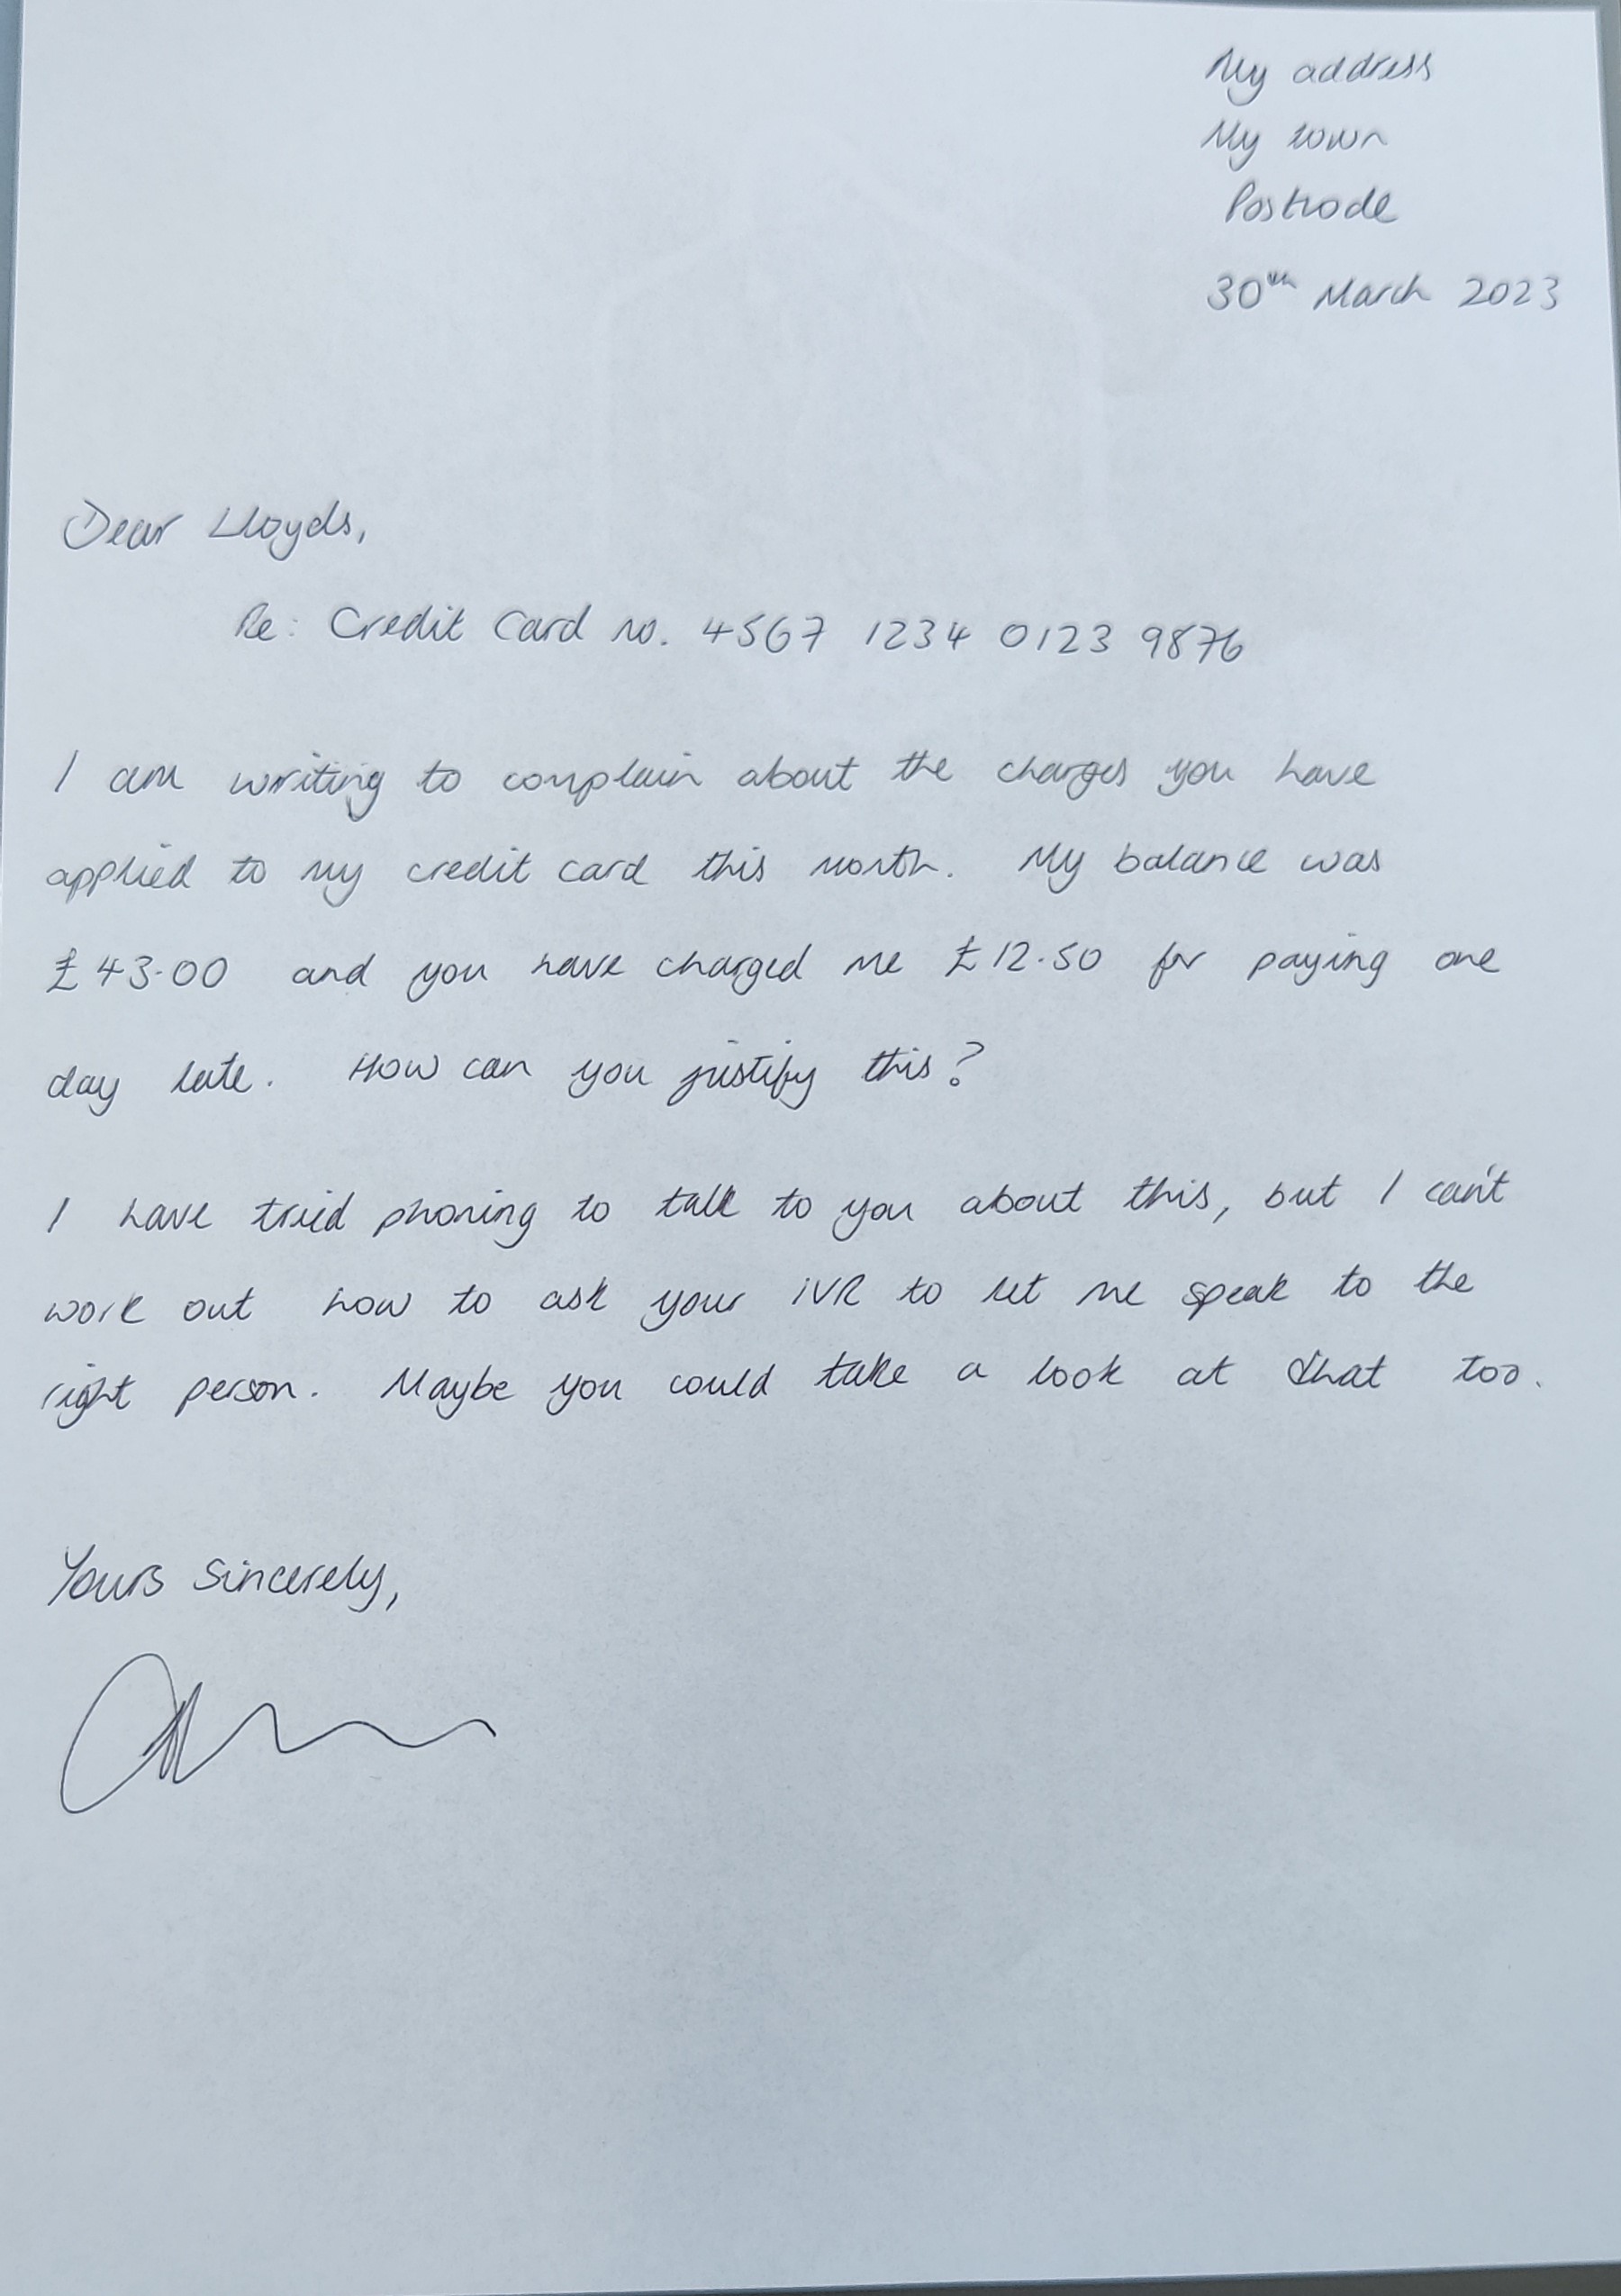 My address
My town
Postcode
30th March 2023
Dear Lloyds,
Re: Credit Card no. 4567 1234 0123 9876
I am writing to complain about the charges you have
applied to my credit card this month. My balance was
£43.00 and you have charged me £12.50 for paying one
day late. How can you justify this?
I have tried phoning to talk to you about this, but I can't
work out how to ask your IVR to let me speak to the
right person. Maybe you could take a look at that too.
Yours Sincerely,